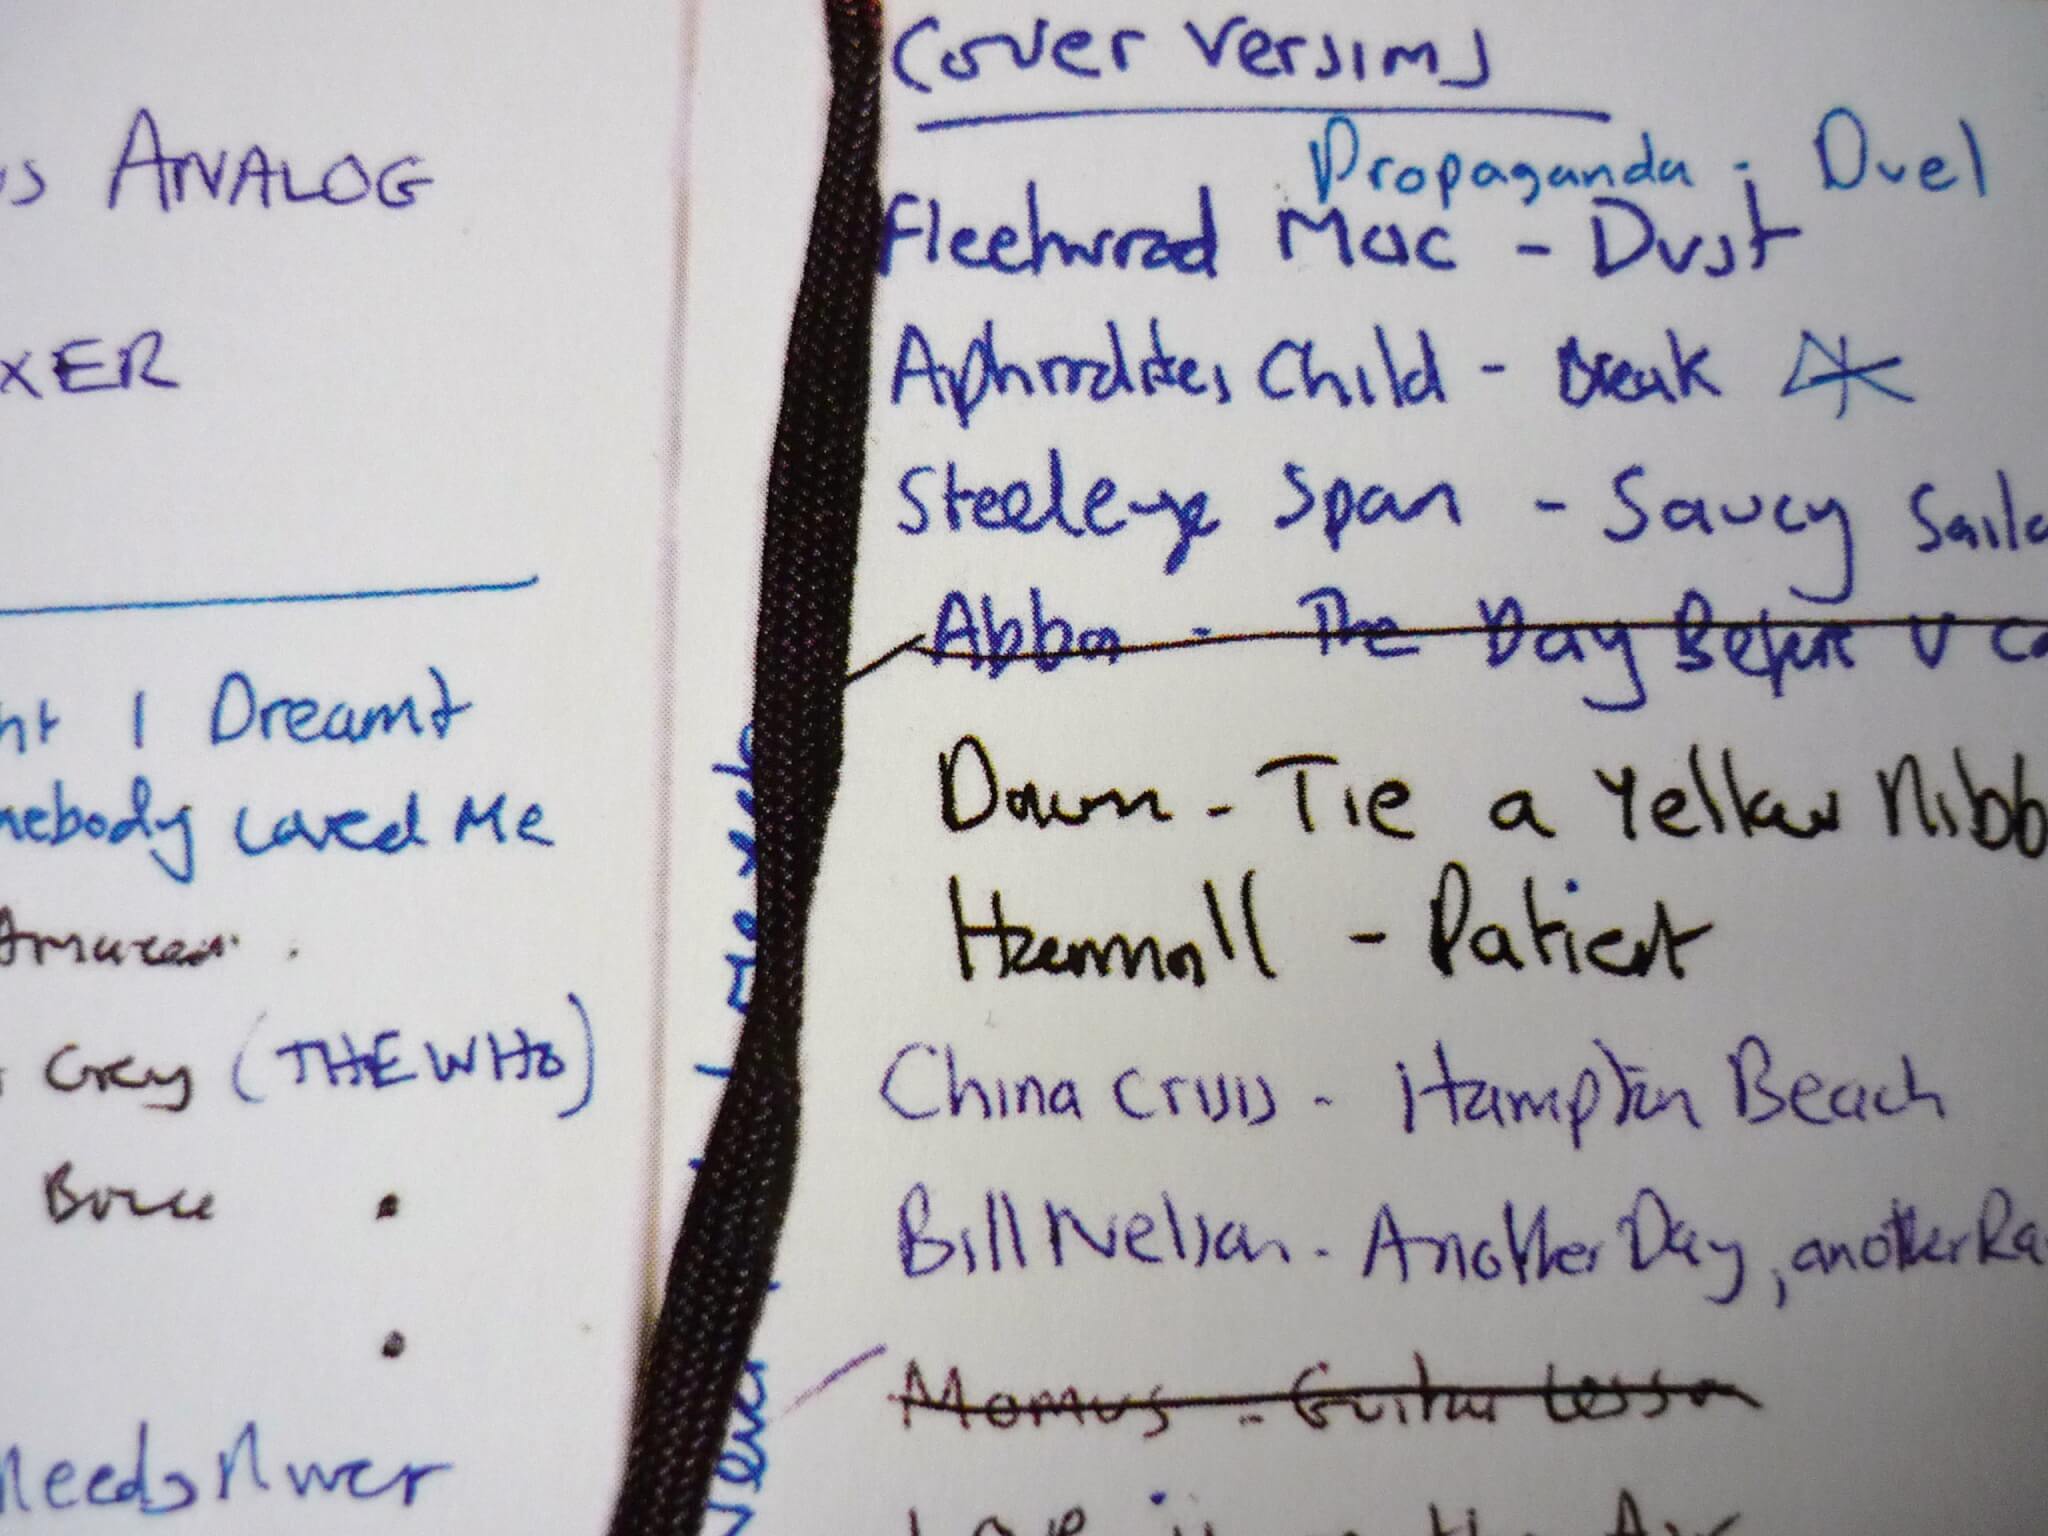 ANALOG
XER
I Dreamt
mebody Loved Me
Grey (THE WHO)
Needs
Cover Versions
Propaganda - Duel
Fleetwood Mac - Dust
Aphrodites Child - Break
Steeleye Span - Saucy Sailo
Abba - The Day Before U Ca
Dawn - Tie a Yellow Ribb
Hammill - Patient
China Crisis - Hampton Beach
Bill Nelson - Another Day, another Ra
Momus - Guitar Lesson